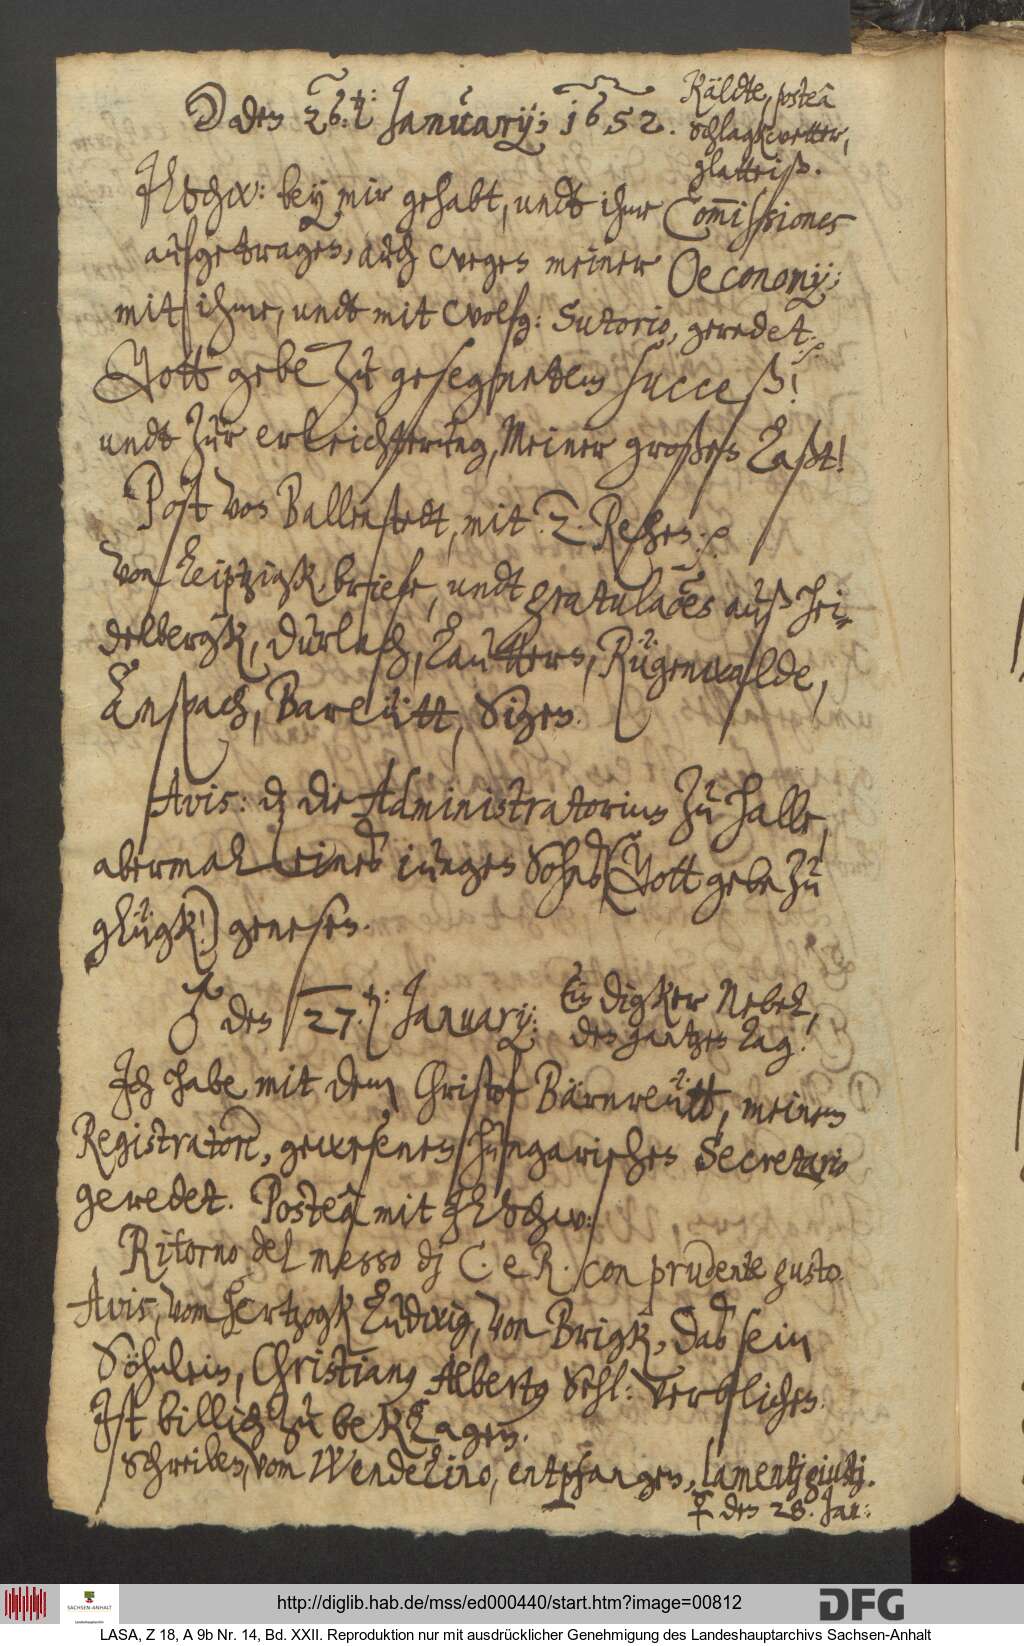 ☽ den 26.ten: January; 1652.
Käldte, posteà
Schlagkwetter,
glatteiß.
bey mir gehabt, undt ihme Commissiones
aufgetragen, auch wegen meiner Oeconomy;
mit ihme, undt mit Wolfg: Sutorio, geredet.
Gott gebe zu gesegnetem succeß!
undt zur erleichterung, Meiner großen Laßt!
Post von Ballenstedt, mit 2. Rehen.
von Leiptzigk briefe, undt gratulaces auß Hei-
delbergk, Durlach, Lauttern, Rügenwalde,
Anspach, Bareütt, Sigen.
Avis: daß die Administratorinn zu Halle,
abermal eines iungen Sohns (Gott gebe zu
glügk!) genesen.
♂ den 27.ten: January:
Ein digker Nebel,
den gantzen Tag.
Ich habe mit dem Christof Bärnreütt, meinem
Registratore, gewesenen Hungarischen Secretario
geredet. Posteà mit
Ritorno del messo dj C. e R. con prudente gusto.
Avis, vom Hertzogk Ludwig, von Brigk, daß sein
Söhnlein, Christianus Albertus Sehl: verblichen.
Ist billich zu beklagen.
Schreiben, vom Wendelino, entpfangen, lamentj giustj.
☿ den 28. Jan:
http://diglib.hab.de/mss/ed000440/start.htm?image=00812
SACHSEN-ANHALT
Landeshauptarchiv
DFG
LASA, Z 18, A 9b Nr. 14, Bd. XXII. Reproduktion nur mit ausdrücklicher Genehmigung des Landeshauptarchivs Sachsen-Anhalt